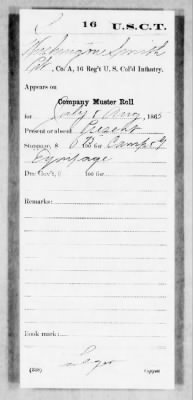 16 U.S.C.T.
Washington Smith
Pvt, Co. A, 16 Reg't U. S. Col'd Infantry.
Appears on
Company Muster Roll
for July & Aug, 1865
Present or absent Present
Stoppage, $ 6 100 for Camp & G
Eqpage
Due Gov't, $ 100 for
Remarks:
Book mark:
(358) Copyist.